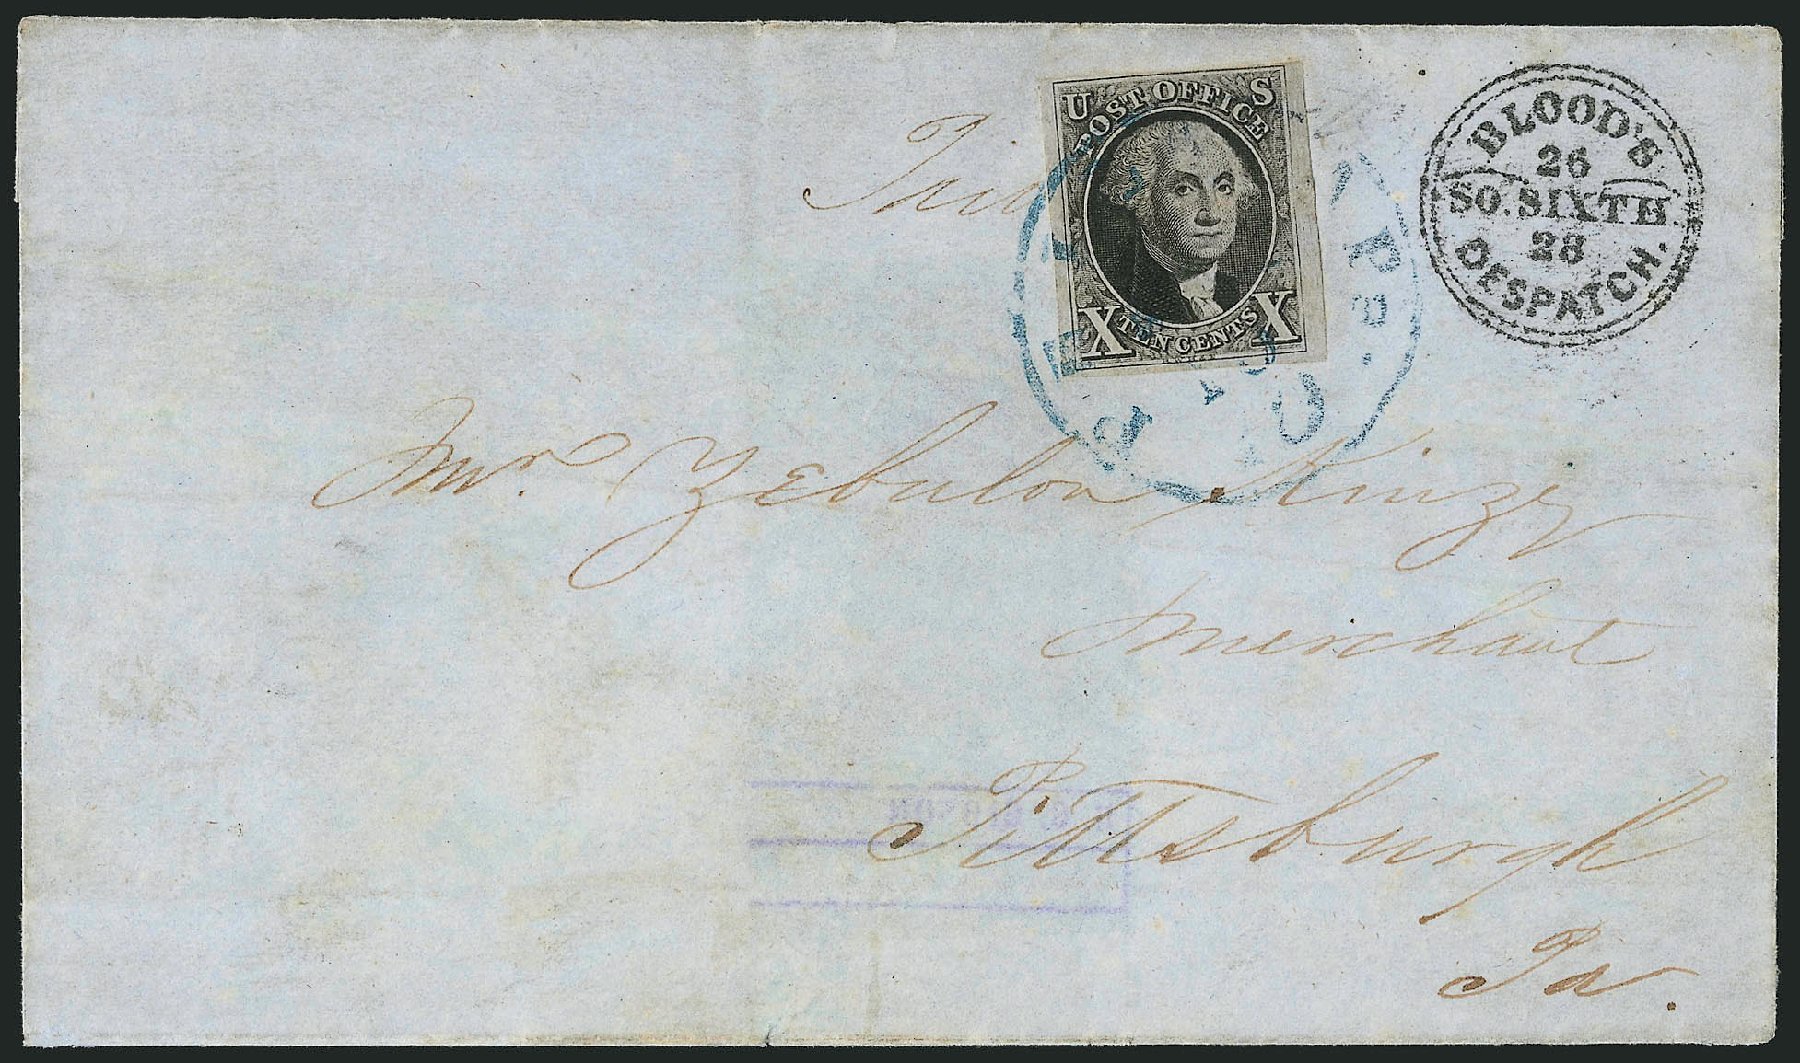 U S
POST OFFICE
X TEN CENTS X
BLOOD'S
26
SO. SIXTH
28
DESPATCH.
Mr. Zebulon Kinzey
Merchant
Pittsburgh
Pa.